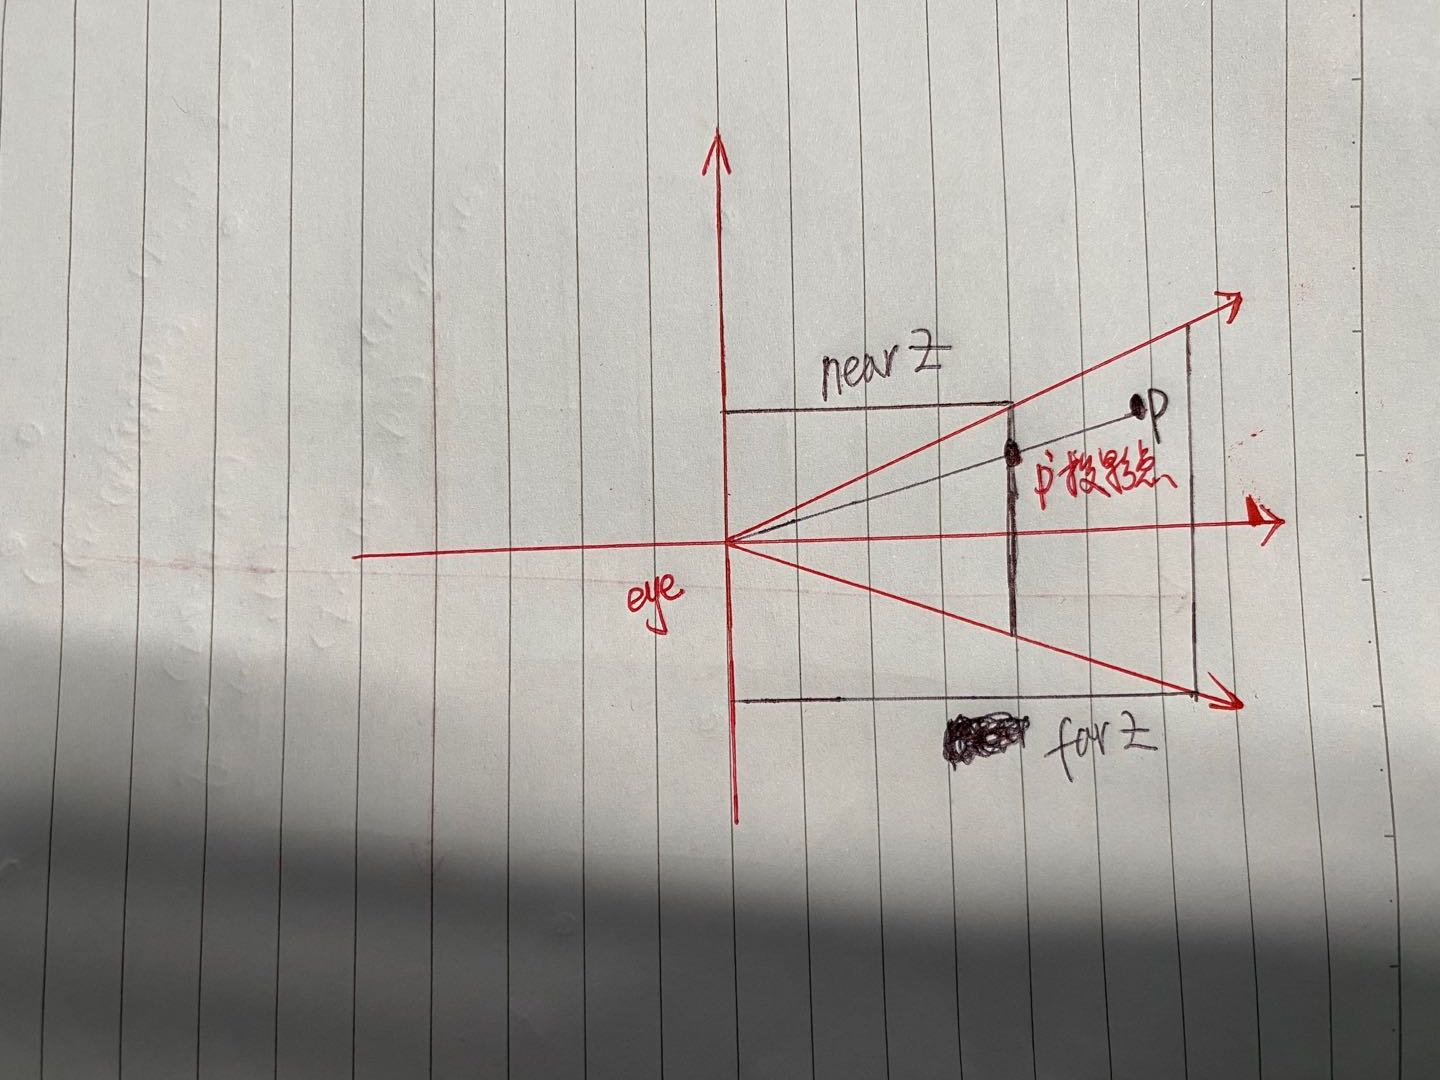 near Z
P
p' 投影点
eye
far Z